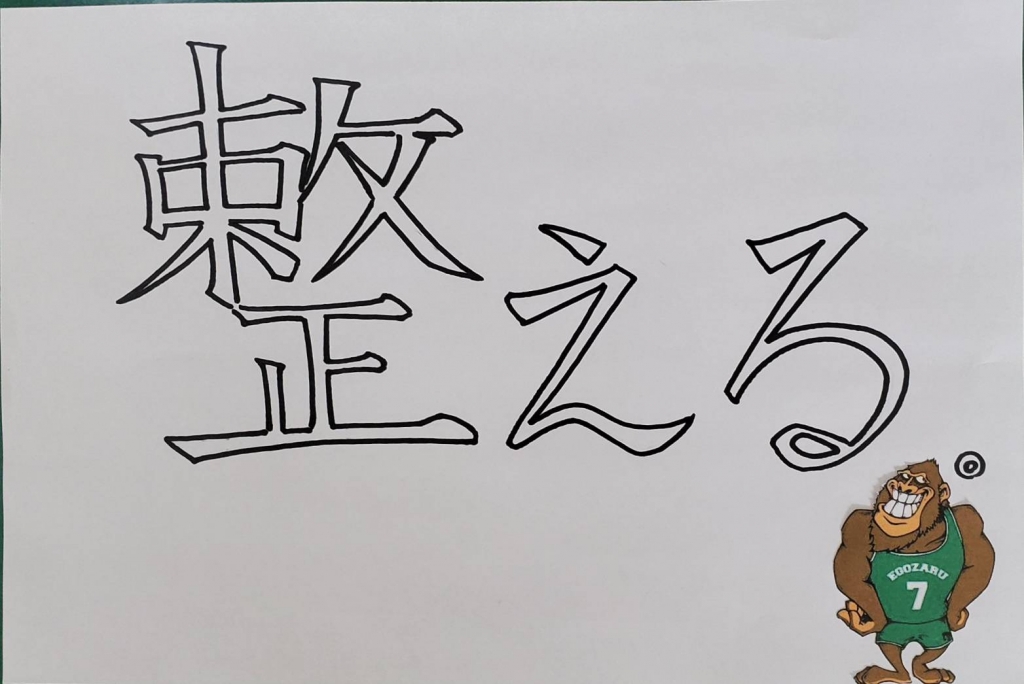 整える
EGOZARU
7